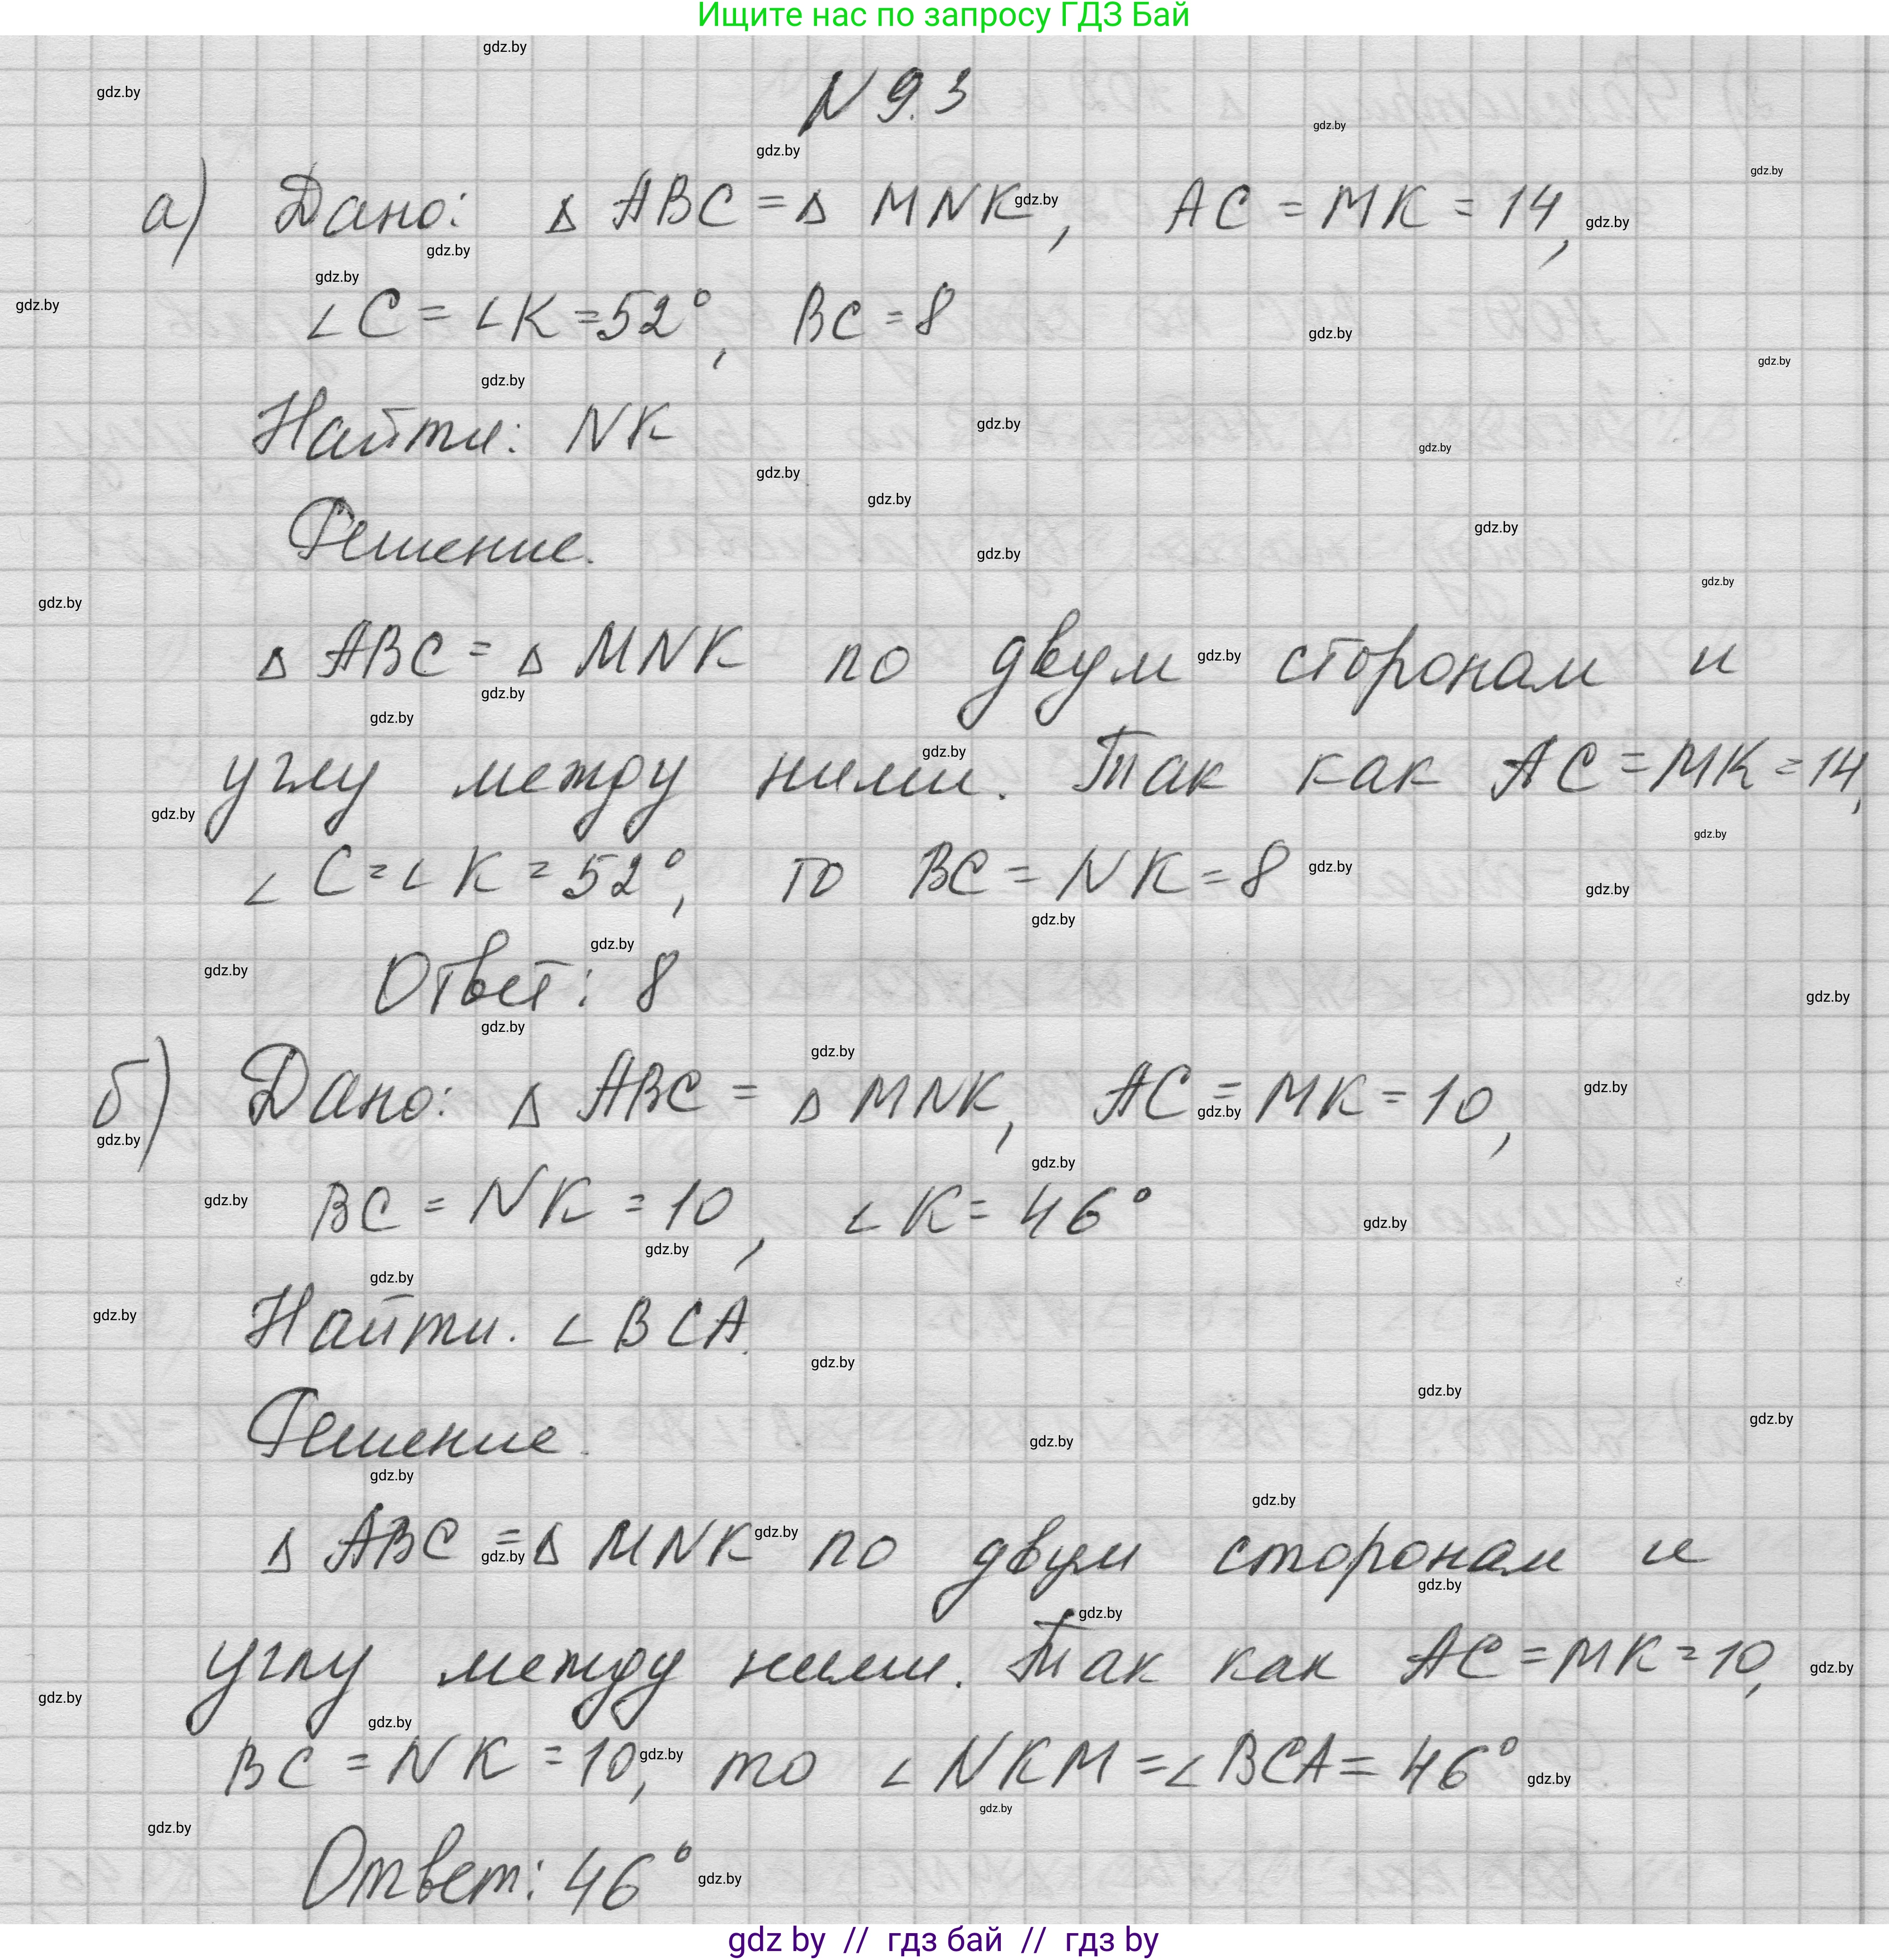 Ищите нас по запросу ГДЗ Бай
N 9.3
а) Дано: Δ ABC = Δ MNK, AC = MK = 14,
∠C = ∠K = 52°, BC = 8
Найти: NK
Решение.
Δ ABC = Δ MNK по двум сторонам и
углу между ними. Так как AC = MK = 14,
∠C = ∠K = 52°, то BC = NK = 8
Ответ: 8
б) Дано: Δ ABC = Δ MNK, AC = MK = 10,
BC = NK = 10, ∠K = 46°
Найти. ∠BCA.
Решение.
Δ ABC = Δ MNK по двум сторонам и
углу между ними. Так как AC = MK = 10,
BC = NK = 10, то ∠NKM = ∠BCA = 46°
Ответ: 46°
gdz by // гдз бай // гдз by